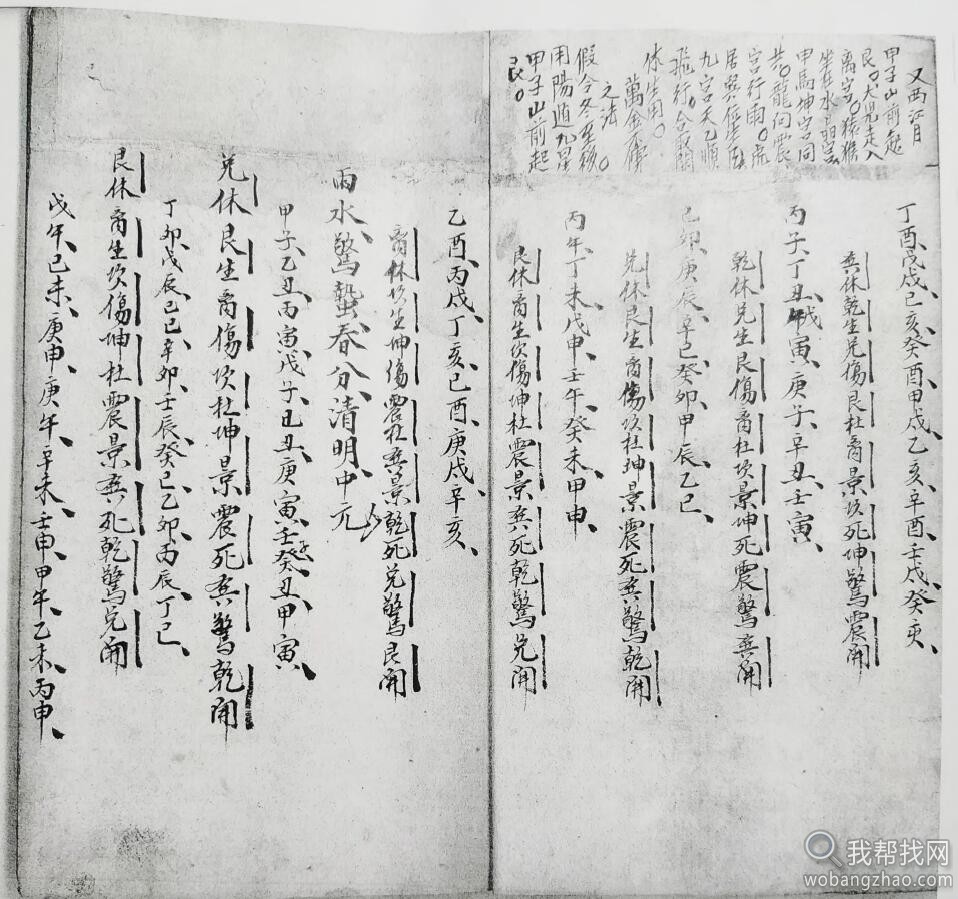 又西江月
甲子山前起
艮。犬兒走入
離宮。猿猴
坐在水晶宮
甲馬坤宮同
共。龍向震
宮行雨。虎
居巽位生
九宮天乙順
飛行。合
休生用。
萬金
之法。
假令冬至
用陽遁九星
甲子山前起
艮。
丁酉、戊戌、己亥、癸酉、甲戌、乙亥、辛酉、壬戌、癸亥、
巽休乾生兌傷艮杜離景坎死坤驚震開
丙子、丁丑、戊寅、庚子、辛丑、壬寅、
乾休兌生艮傷離杜坎景坤死震驚巽開
己卯、庚辰、辛巳、癸卯、甲辰、乙巳、
兌休艮生離傷坎杜坤景震死巽驚乾開
丙午、丁未、戊申、壬午、癸未、甲申、
艮休離生坎傷坤杜震景巽死乾驚兌開
乙酉、丙戌、丁亥、己酉、庚戌、辛亥、
離休坎生坤傷震杜巽景乾死兌驚艮開
雨水、驚蟄、春分、清明、中元
甲子、乙丑、丙寅、戊子、己丑、庚寅、壬子、癸丑、甲寅、
兌休艮生離傷坎杜坤景震死巽驚乾開
丁卯、戊辰、己巳、辛卯、壬辰、癸巳、乙卯、丙辰、丁巳、
艮休離生坎傷坤杜震景巽死乾驚兌開
戊午、己未、庚申、庚午、辛未、壬申、甲午、乙未、丙申、
我帮找网
wobangzhao.com